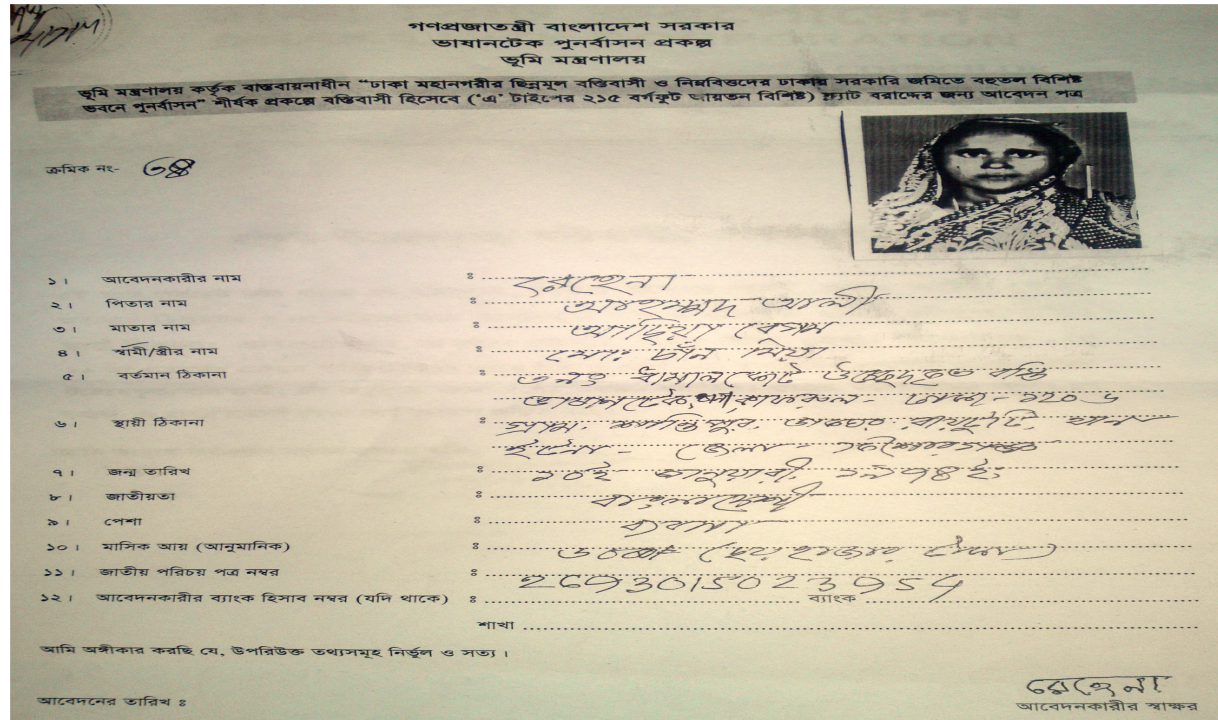 গণপ্রজাতন্ত্রী বাংলাদেশ সরকার
ভাষানটেক পুনর্বাসন প্রকল্প
ভূমি মন্ত্রণালয়
ভূমি মন্ত্রণালয় কর্তৃক বাস্তবায়নাধীন “ঢাকা মহানগরীর ছিন্নমূল বস্তিবাসী ও নিম্নবিত্তদের ঢাকায় সরকারি জমিতে বহুতল বিশিষ্ট
ভবনে পুনর্বাসন” শীর্ষক প্রকল্পে বস্তিবাসী হিসেবে (‘এ’ টাইপের ২১৫ বর্গফুট আয়তন বিশিষ্ট) ফ্ল্যাট বরাদ্দের জন্য আবেদন পত্র
ক্রমিক নং-
১। আবেদনকারীর নাম ঃ রেহেনা
২। পিতার নাম ঃ আহাম্মদ আলী
৩। মাতার নাম ঃ বেগম
৪। স্বামী/স্ত্রীর নাম ঃ মোঃ চাঁন মিয়া
৫। বর্তমান ঠিকানা ঃ ৩নং ধামালকোট উচ্ছেদকৃত বস্তি
ভাষানটেক, কাফরুল- ঢাকা- ১২০৬
৬। স্থায়ী ঠিকানা ঃ গ্রাম, শান্তিপুর, ডাকঘর, থানা
ইটনা - জেলা - কিশোরগঞ্জ
৭। জন্ম তারিখ ঃ ১০ই জানুয়ারী, ১৯৭৪ ইং
৮। জাতীয়তা ঃ বাংলাদেশী
৯। পেশা ঃ ব্যবসা
১০। মাসিক আয় (আনুমানিক) ঃ ৬০০০ (ছয় হাজার টাকা)
১১। জাতীয় পরিচয় পত্র নম্বর ঃ
১২। আবেদনকারীর ব্যাংক হিসাব নম্বর (যদি থাকে) ঃ ব্যাংক
শাখা
আমি অঙ্গীকার করছি যে, উপরিউক্ত তথ্যসমূহ নির্ভুল ও সত্য।
রেহেনা
আবেদনের তারিখ ঃ আবেদনকারীর স্বাক্ষর